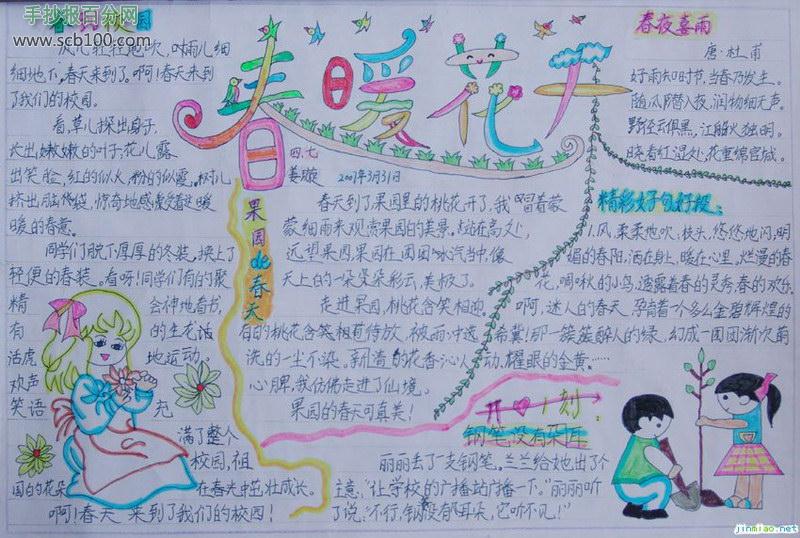 手抄报百分网
www.scb100.com
园
风儿轻轻地吹，吹雨儿细
细地下，春天来到了。啊！春天来到
了我们的校园。
看，草儿探出身子，
长出嫩嫩的叶子；花儿露
出笑脸，红的似火，粉的似霞。树儿
挤出脑袋，惊奇地感受着这暖
暖的春意。
同学们脱下厚厚的冬装，换上了
轻便的春装。看呀！同学们有的聚
精会神地看书，
有的生龙活
活虎地运动。
欢声
笑语充
满了整个
校园，祖
国的花朵在春光中茁壮成长。
啊！春天来到了我们的校园！
春暖花开
四、七
姜璇
2007年3月31日
果园de春天
春天到了果园里的桃花开了，我冒着蒙
蒙细雨来观赏果园的美景。站在高文上，
远望果园，果园在团团水气当中，像
天上的一朵朵朵彩云，美极了。
走进果园，桃花含笑相迎，
有的桃花含笑相迎待放，被雨冲洗
洗的一尘不染。新温的花香沁人
心脾，我仿佛走进了仙境。
果园的春天可真美！
春夜喜雨
唐·杜甫
好雨知时节，当春乃发生。
随风潜入夜，润物细无声。
野径云俱黑，江船火独明。
晓看红湿处，花重锦官城。
精彩好句好段：
1.风，柔柔地吹，枝头，悠悠地闪，明
媚的春阳，洒在身上，暖在心里，烂漫的春
花，啁啾的小鸟，透露着春的灵秀，春的欢乐。
啊，迷人的春天，孕育着一个多么金碧辉煌的
希冀！那一簇簇醉人的绿，幻成一团团渐次萌
动，耀眼的金黄……
开心1刻：
钢笔没有耳朵
丽丽丢了一支钢笔。兰兰给她出了个
主意，“让学校的广播站广播一下。”丽丽听
了说：“不行，钢没有耳朵，它听不见！”
jinmiao.net